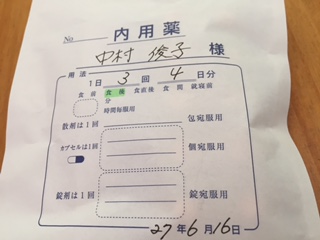 No.
内用薬
中村 俊子 様
用法
1日 3 回 4 日分
食前 食後 食直後 食間 就寝前
分
時間毎服用
散剤は1回 包宛服用
カプセルは1回 個宛服用
錠剤は1回 錠宛服用
27年6月16日